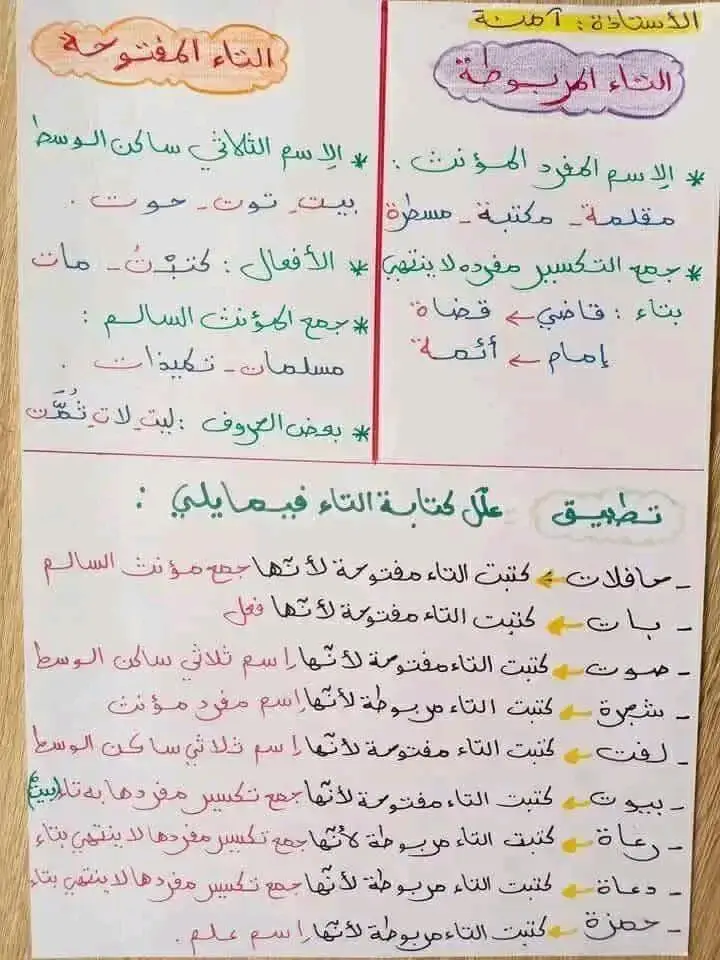 الأستاذة : آمنة
التاء المربوطة
* الإسم المفرد المؤنث :
مقلمة - مكتبة - مسطرة
* جمع التكسير مفرده لا ينتهي
بتاء : قاضي ← قضاة
إمام ← أئمة
التاء المفتوحة
* الإسم الثلاثي ساكن الوسط
بيت - توت - حوت .
* الأفعال : كتبْتُ - مات
* جمع المؤنث السالم :
مسلمات - تلميذات .
* بعض الحروف : ليت لات ثُمَّت
تطبيق علّل كتابة التاء فيمايلي :
- حافلات ← كتبت التاء مفتوحة لأنّها جمع مؤنث السالم
- بات ← كتبت التاء مفتوحة لأنّها فعل
- صوت ← كتبت التاء مفتوحة لأنّها إسم ثلاثي ساكن الوسط
- شجرة ← كتبت التاء مربوطة لأنّها إسم مفرد مؤنث
- لفت ← كتبت التاء مفتوحة لأنّها إسم ثلاثي ساكن الوسط
- بيوت ← كتبت التاء مفتوحة لأنّها جمع تكسير مفردها به تاء (بيت)
- رعاة ← كتبت التاء مربوطة لأنّها جمع تكسير مفردها لا ينتهي بتاء
- دعاة ← كتبت التاء مربوطة لأنّها جمع تكسير مفردها لا ينتهي بتاء
- حمزة ← كتبت التاء مربوطة لأنّها إسم علم .